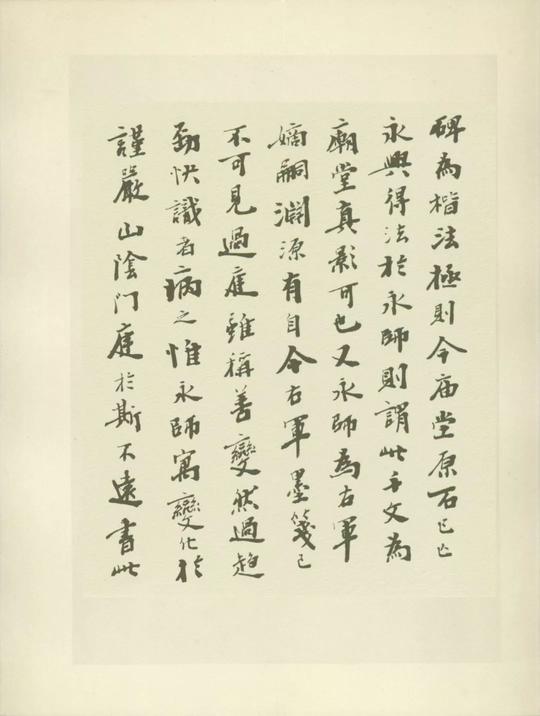 碑為楷法極則今庙堂原石已亡
永興得法於永師則謂此千文為
廟堂真影可也又永師為右軍
嫡嗣淵源有自今右軍墨箋已
不可見過庭雖稱善變然過趋
勁快識者病之惟永師寓變化於
謹嚴山陰门庭於斯不遠書此